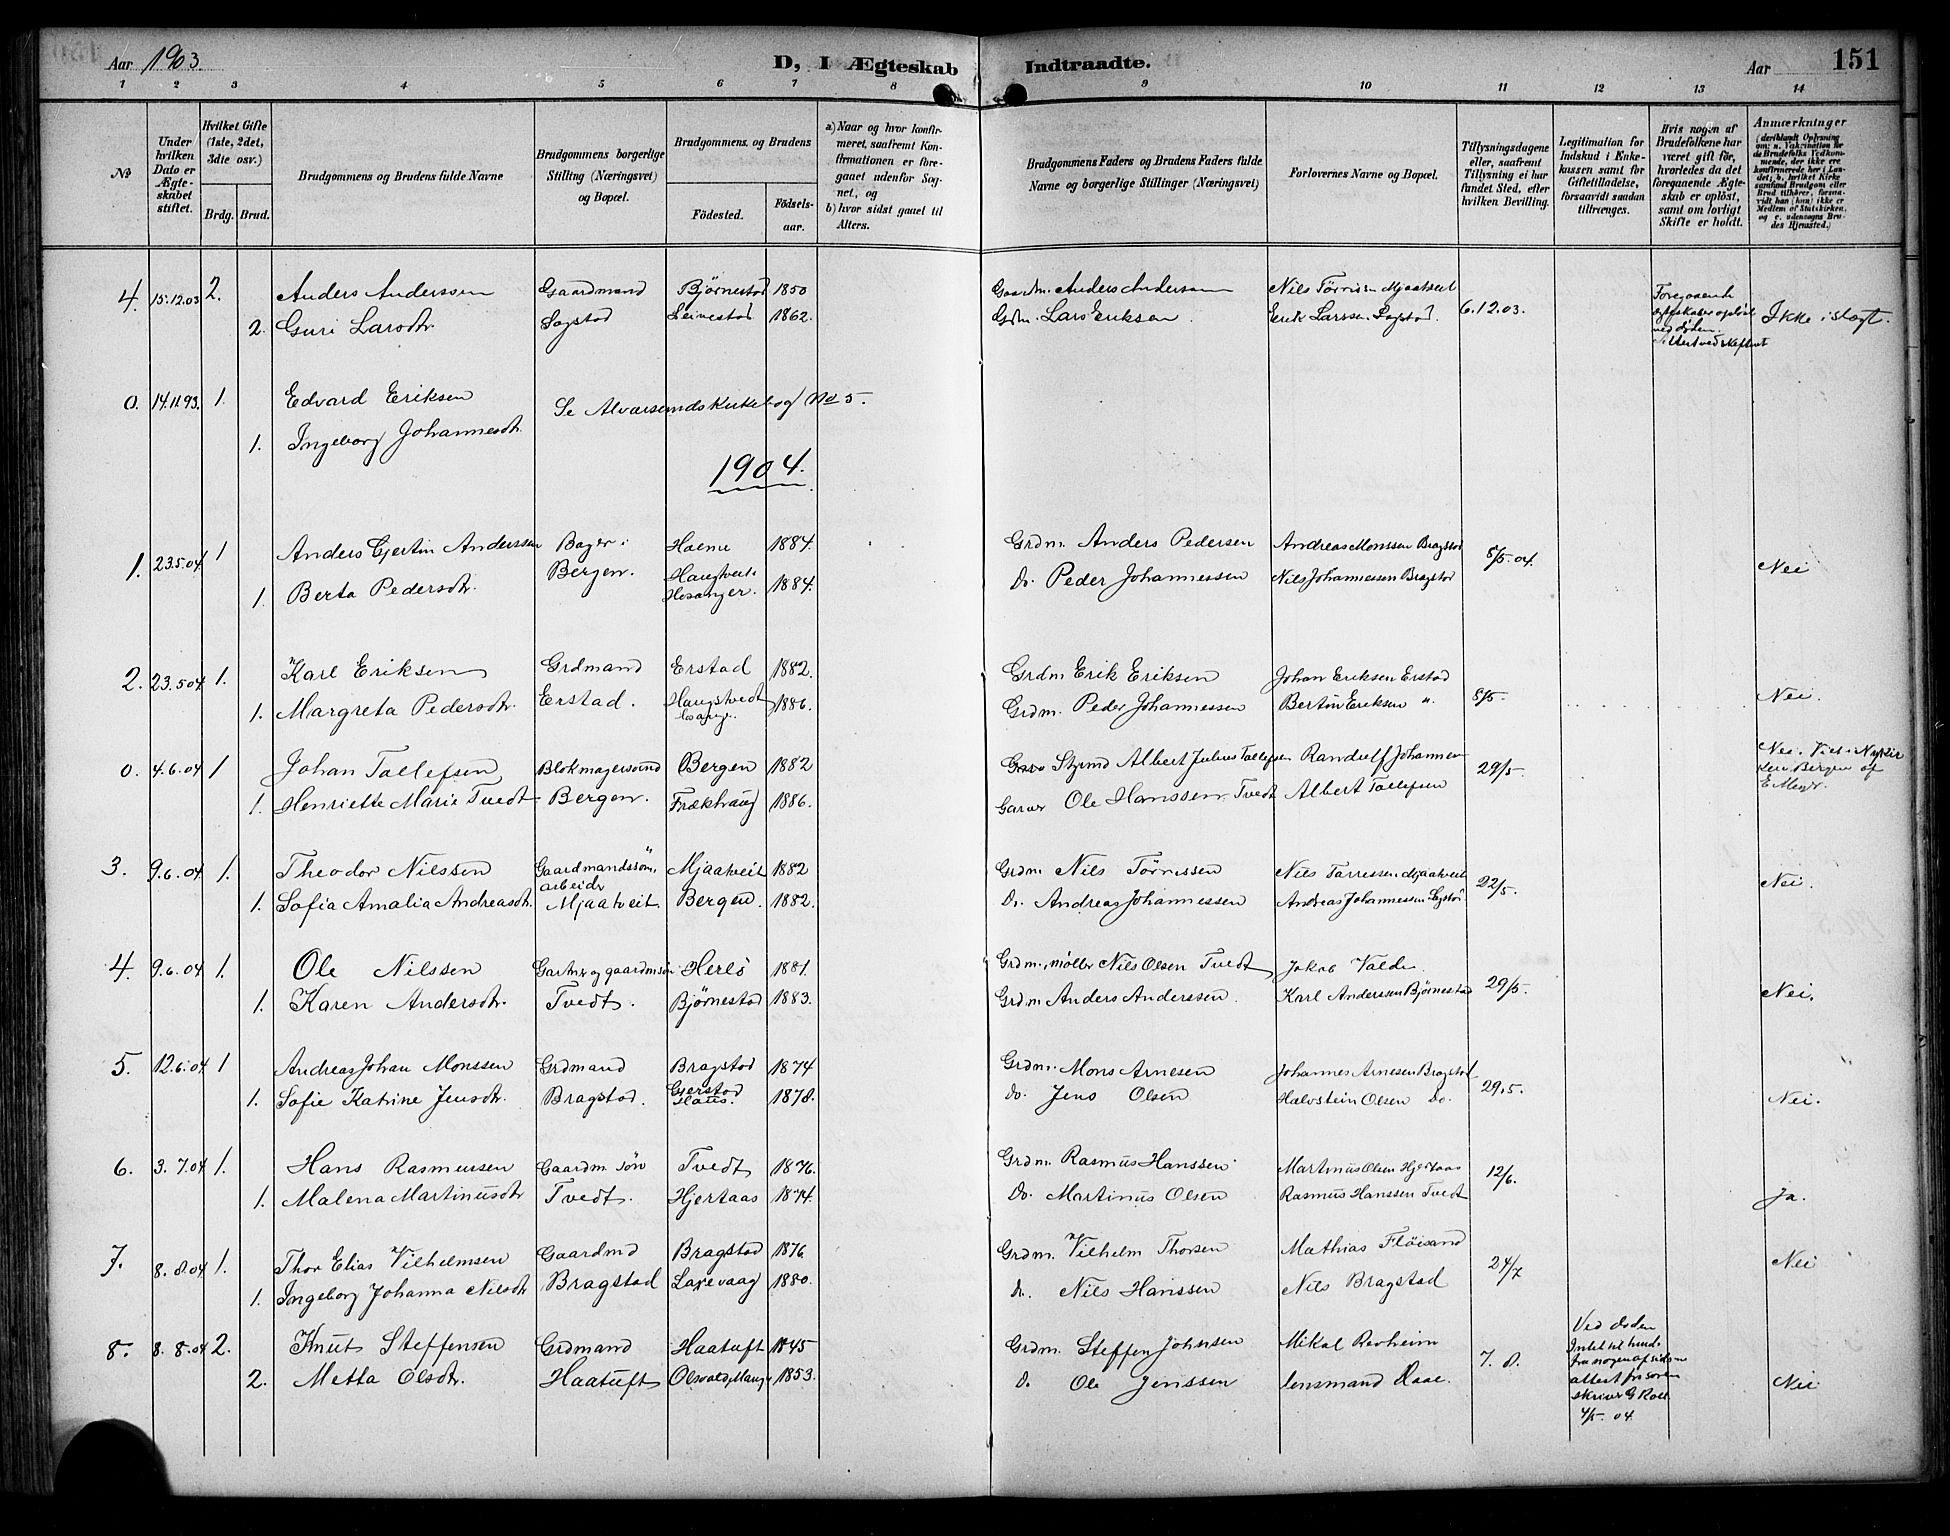 Aar 1903.
D, I Ægteskab Indtraadte.
Aar
151
1 2 3 4 5 6 7 8 9 10 11 12 13 14
No
Under hvilken Dato er Ægteskabet stiftet.
Hvilket Gifte (1ste, 2det, 3die osv.)
Brdg. Brud.
Brudgommens og Brudens fulde Navne
Brudgommens borgerlige Stilling (Næringsvei) og Bopæl.
Brudgommens og Brudens
Fødested.
Fødselsaar.
a) Naar og hvor konfirmeret, saafremt Konfirmationen er foregaaet udenfor Sognet, og
b) hvor sidst gaaet til Alters.
Brudgommens Faders og Brudens Faders fulde Navne og borgerlige Stillinger (Næringsvei)
Forlovernes Navne og Bopæl.
Tillysningsdagene eller, saafremt Tillysning ei har fundet Sted, efter hvilken Bevilling.
Legitimation for Indskud i Enkekassen samt for Giftetilladelse, forsaavidt saadan tiltrænges.
Hvis nogen af Brudefolkene har været gift før, hvorledes da det foregaaende Ægteskab er opløst, samt om lovligt Skifte er holdt.
Anmærkninger
(deriblandt Oplysning om: a. Vakcination for de Brudefolks Vedkommende, der ikke ere konfirmerede her i Landet; b. hvilket Kirkesamfund Brudgom eller Brud tilhører, forsaavidt han (hun) ikke er Medlem of Statskirken, og c. udensogns Brudes Hjemsted.)
4. 15.12.03 2. Anders Anderssen Gaardmand Bjørnestad 1850 Gaardm. Anders Anderssen Nils Tørrisen Mjaatveit 6.12.03. Foregaaende ægteskaber opløst ved døden. Ikke i slegt.
2. Guri Larsdtr. Sagstad 1862. Grdm. Lars Eriksen. Erik Larssen Sagstad.
0. 14.11.93. 1. Edvard Eriksen Se Alversunds Kirkebog No 5.
1. Ingeborg Johannesdtr.
1904.
1. 23.5.04 1 Anders Gjertin Anderssen Bager i 1884. Grdm. Anders Pedersen Andreas Monssen Bragstad 8/5.04. Nei
1. Berta Pedersdtr. Bergen. Haugstveit Hosanger. 1884. Do. Peder Johannessen Nils Johannessen Bragstad
2. 23.5.04 1. Karl Eriksen Grdmand Erstad 1882. Grdm Erik Eriksen Johan Eriksen Erstad 8/5. Nei.
1. Margreta Pedersdtr. Erstad. Haugstvedt 1886. Grdm. Peder Johannessen Bertin Eriksen "
0. 4.6.04 1 Johan Tollefsen Blokmagersvend Bergen 1882 Styrmd Albert Julius Tollefsen Randulf Johannesen 29/5. Nei. Viet i Nykirken Bergen af E Meyer.
1. Henriette Marie Tvedt Bergen. Frækhaug 1886. Garver Ole Hanssen Tvedt Albert Tollefsen
3. 9.6.04 1. Theodor Nilssen Gaardmandssøn, arbeider Mjaatveit 1882 Grdm. Nils Tørrissen Nils Tørrissen Mjaatveit 22/5. Nei.
1. Sofia Amalia Andreasdtr. Mjaatveit Bergen. 1882. Do. Andreas Johannessen Andreas Johannessen
4. 9.6.04 1. Ole Nilssen Gartner og gaardmsøn Herlø 1881. Grdm., møller Nils Olsen Tvedt Jakob 29/5. Nei.
1. Karen Andersdtr. Tvedt. Bjørnestad 1883. Grdm Anders Anderssen. Karl Anderssen Bjørnestad
5. 12.6.04 1 Andreas Johan Monssen Grdmand Bragstad 1874 Grdm. Mons Arnesen Johannes Arnesen Bragstad 29.5. Nei.
1. Sofie Katrine Jensdtr. Bragstad. Gjerstad Haus. 1878. do. Jens Olsen Halvstein Olsen Do.
6. 3.7.04 1. Hans Rasmussen Gaardm.søn Tvedt 1876. Grdm. Rasmus Hanssen Martinus Olsen Hjertaas 12/6. Ja.
1. Malena Martinusdtr Tvedt. Hjertaas 1874. Do. Martinus Olsen Rasmus Hanssen Tvedt
7. 8.8.04 1. Thor Elias Vilhelmsen Gaardmd Bragstad 1876 Grdm. Vilhelm Thorsen Mathias Fløisand 24/7 Nei
1. Ingeborg Johanna Nilsdtr Bragstad Laxevaag 1880. D. Nils Hanssen Nils Bragstad
8. 8.8.04 2. Knut Steffensen Grdmand Haatuft 1845 Grdm. Steffen Johnsen Mikal Revheim 7.8. Ved døden Intet til hinder fra nogen af siderne attest fra sorenskriver G Roll 4/5.04 Nei
2. Metta Olsdtr. Haatuft 1853. D. Ole Jenssen lensmand Daae.